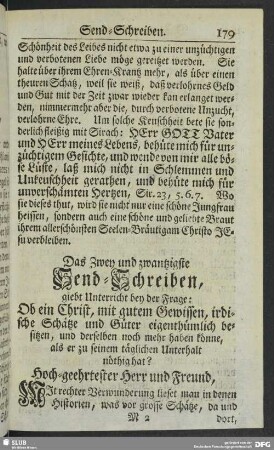 Send-Schreiben. 179
Schönheit des Leibes nicht etwa zu einer unzüchtigen
und verbotenen Liebe möge gereitzet werden. Sie
halte über ihrem Ehren-Krantz mehr, als über einen
theuren Schatz, weil sie weiß, daß verlohrnes Geld
und Gut mit der Zeit zwar wieder kan erlanget wer-
den, nimmermehr aber die, durch verbotene Unzucht,
verlohrne Ehre. Um solche Keuschheit bete sie son-
derlich fleißig mit Sirach: HErr GOTT Vater
und HErr meines Lebens, behüte mich für un-
züchtigem Gesichte, und wende von mir alle bö-
se Lüste, laß mich nicht in Schlemmen und
Unkeuschheit gerathen, und behüte mich für
unverschämten Hertzen, Sir. 23, 5. 6. 7. Wo
sie dieses thut, wird sie nicht nur eine schöne Jungfrau
heissen, sondern auch eine schöne und geliebte Braut
ihrem allerschönsten Seelen-Bräutigam Christo JE-
su verbleiben.
Das Zwey und zwantzigste
Send-Schreiben,
giebt Unterricht bey der Frage:
Ob ein Christ, mit gutem Gewissen, irdi-
sche Schätze und Güter eigenthümlich be-
sitzen, und derselben noch mehr haben könne,
als er zu seinem täglichen Unterhalt
nöthig hat?
Hoch-geehrtester Herr und Freund,
Mit rechter Verwunderung lieset man in denen
Historien, was vor grosse Schätze, da und
M 2 dort,
SLUB